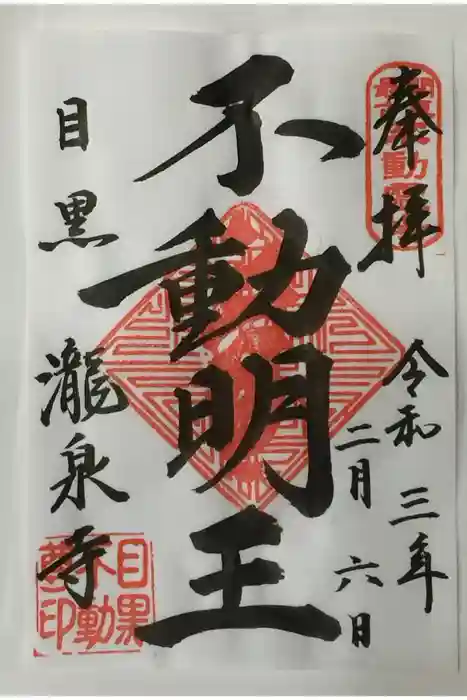 奉拝
令和三年
二月六日
不動明王
目黒
瀧泉寺
目黒不動尊印